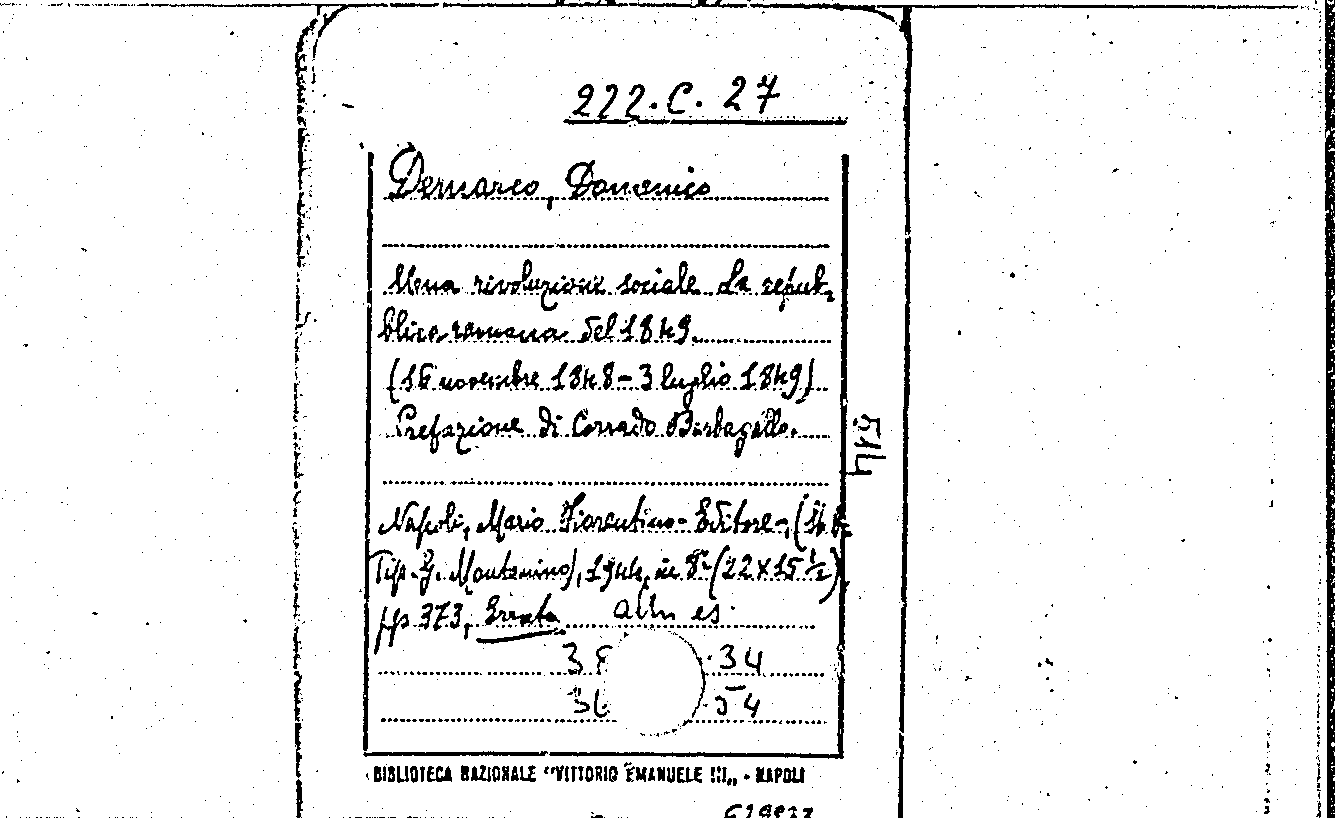 222.C.27
Demarco, Domenico
Una rivoluzione sociale. La repub-
blica romana del 1849.
(16 novembre 1848 - 3 luglio 1849)
Prefazione di Corrado Barbagallo.
514
Napoli, Mario Fiorentino - Editore -, (Stab.
Tip. G. Montanino), 1944, in 8° (22 x 15 ½)
pp 373, Errata altri es.
38 .34
36 .54
BIBLIOTECA NAZIONALE "VITTORIO EMANUELE III" - NAPOLI